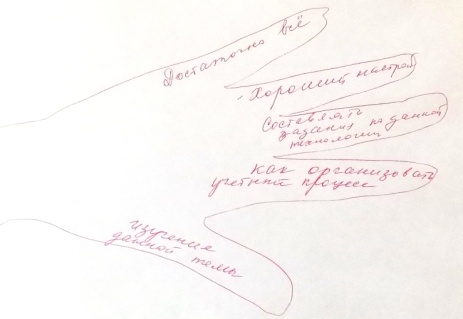 Достаточно всё
Хороший настрой
Составлять
задания по данной
технологии
как организовать
учебный процесс
изучения
данной темы